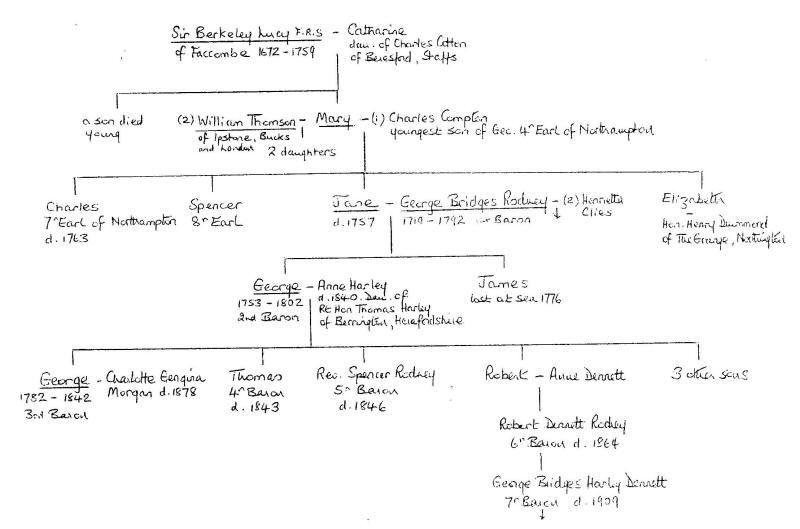 Sir Berkeley Lucy F.R.S - Catharine
of Faccombe 1672-1759
dau. of Charles Cotton
of Beresford, Staffs
a son died
young
(2) William Thomson - Mary - (1) Charles Compton
of Ipstone, Bucks
and London
2 daughters
youngest son of Geo. 4th Earl of Northampton
Charles
7th Earl of Northampton
d. 1763
Spencer
8th Earl
Jane - George Bridges Rodney - (2) Henrietta
Clies
d. 1757
1718-1792 1st Baron
Elizabeth
-
Hon. Henry Drummond
of The Grange, Northington
George - Anne Harley
1753-1802
2nd Baron
d. 1840. Dau. of
Rt Hon Thomas Harley
of Berrington, Herefordshire
James
lost at sea 1776
George - Charlotte Georgina
Morgan d. 1878
1782-1842
3rd Baron
Thomas
4th Baron
d. 1843
Rev. Spencer Rodney
5th Baron
d. 1846
Robert - Anne Dennett
3 other sons
Robert Dennett Rodney
6th Baron d. 1864
George Bridges Harley Dennett
7th Baron d. 1909